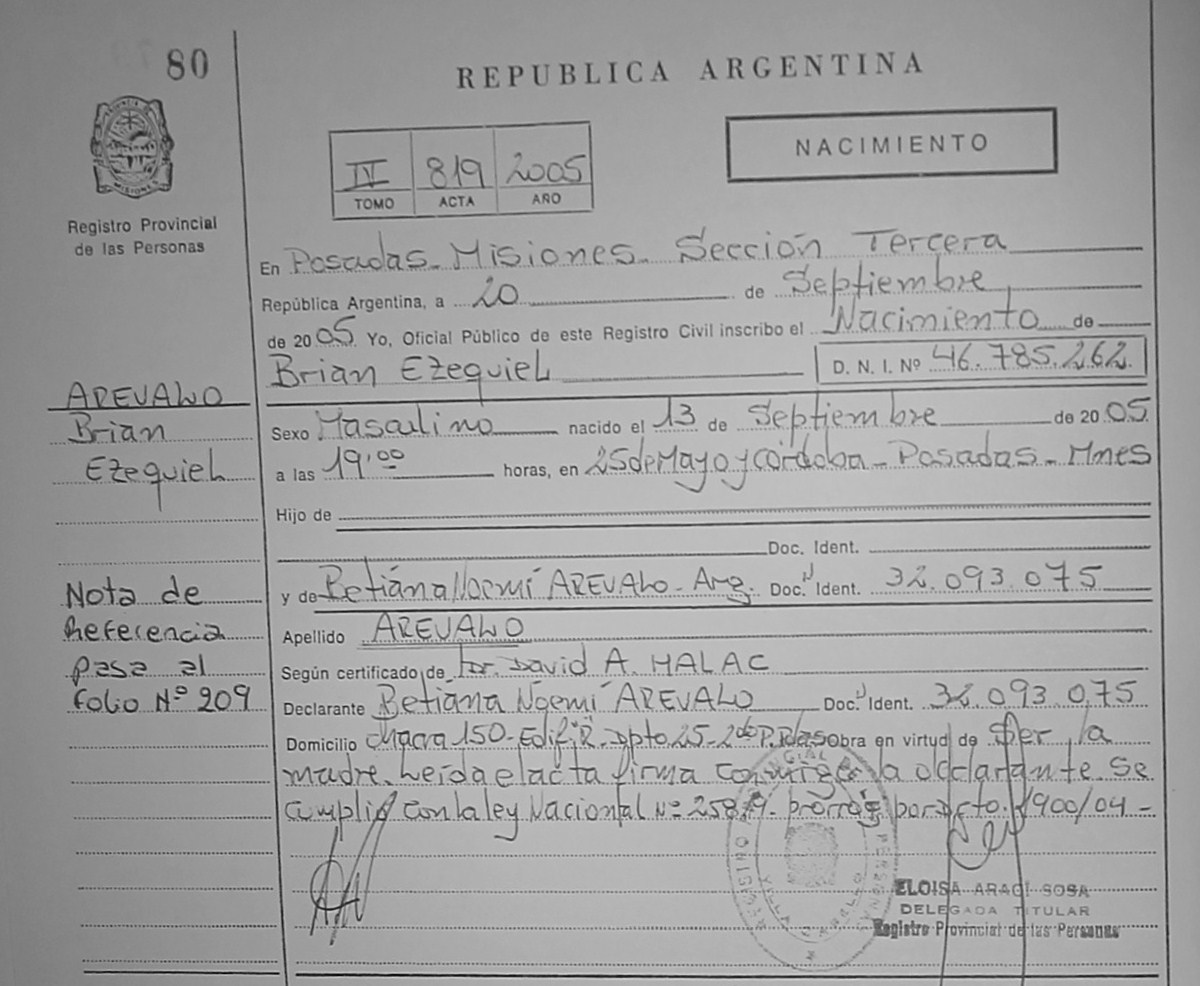 80
REPUBLICA ARGENTINA
NACIMIENTO
IV 819 2005
TOMO ACTA AÑO
Registro Provincial
de las Personas
En Posadas - Misiones - Sección Tercera
República Argentina, a 20 de Septiembre
de 2005 Yo, Oficial Público de este Registro Civil inscribo el Nacimiento de
Brian Ezequiel D. N. I. Nº 46.785.262.
AREVALO
Brian
Ezequiel
Sexo Masculino nacido el 13 de Septiembre de 2005
a las 19'00 horas, en 25 de Mayo y Córdoba - Posadas - Mnes
Hijo de
Doc. Ident.
y de Betiana Noemí AREVALO - Arg. Doc. Ident. 32.093.075
Apellido AREVALO
Según certificado de Dr. David A. MALAC
Declarante Betiana Noemí AREVALO Doc. Ident. 32.093.075
Domicilio Chacra 150 - Edif. R. Dpto 25 - 2do P. Pdas obra en virtud de Ser la
madre. Leída el acta firma conmigo la declarante. Se
cumplió con la ley Nacional Nº 25819. prorrog por dcto. 1900/04 -
Nota de
Referencia
pasa al
folio Nº 209
ELOISA ARACI SOSA
DELEGADA TITULAR
Registro Provincial de las Personas